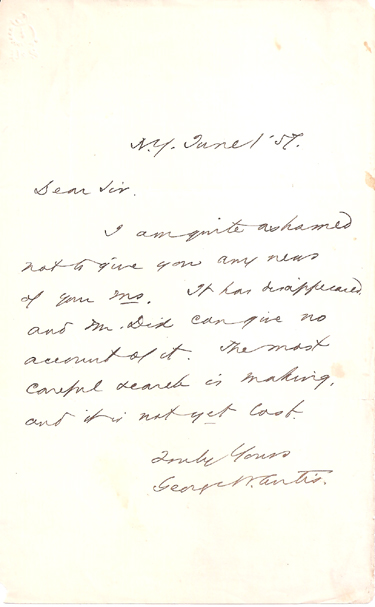 N.Y. June 1 '57.
Dear Sir.
I am quite ashamed
not to give you any news
of your Ms. It has disappeared,
and Mr. Dix can give no
account of it. The most
careful search is making,
and it is not yet lost.
Truly Yours
George W. Curtis.